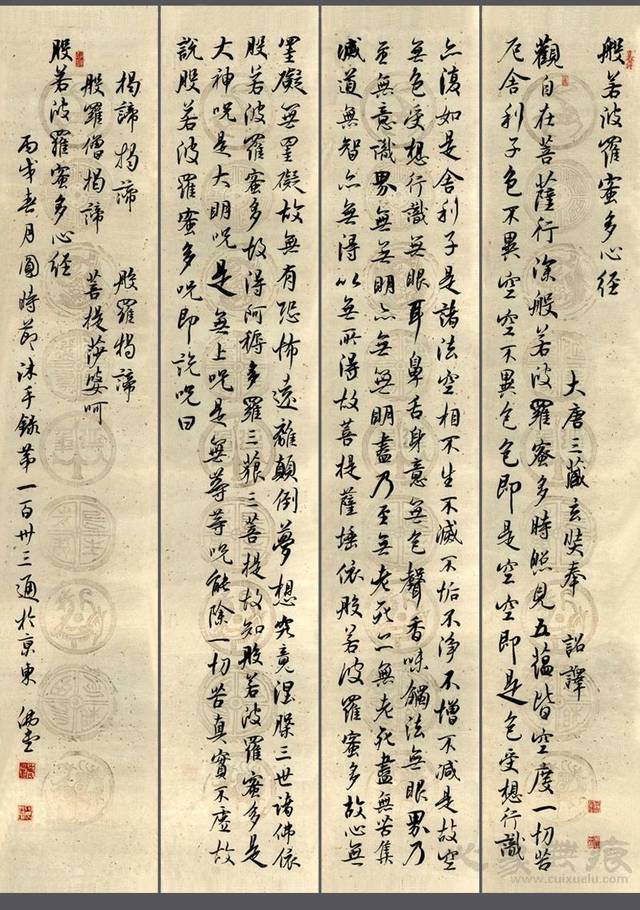 般若波羅蜜多心经
大唐三藏玄奘奉 詔譯
觀自在菩薩行深般若波羅蜜多時照見五蘊皆空度一切苦
厄舍利子色不異空空不異色色即是空空即是色受想行識
亦復如是舍利子是諸法空相不生不滅不垢不淨不增不減是故空
無色受想行識無眼耳鼻舌身意無色聲香味觸法無眼界乃
至無意識界無無明亦無無明盡乃至無老死亦無老死盡無苦集
滅道無智亦無得以無所得故菩提薩埵依般若波羅蜜多故心無
罣礙無罣礙故無有恐怖遠離顛倒夢想究竟涅槃三世諸佛依
般若波羅蜜多故得阿耨多羅三藐三菩提故知般若波羅蜜多是
大神咒是大明咒是無上咒是無等等咒能除一切苦真實不虛故
說般若波羅蜜多咒即說咒曰
揭諦揭諦 般羅揭諦
般羅僧揭諦 菩提莎婆呵
般若波羅蜜多心经
丙戌春月圓時節沐手錄第一百卅三通於京東
www.cuixuelu.com